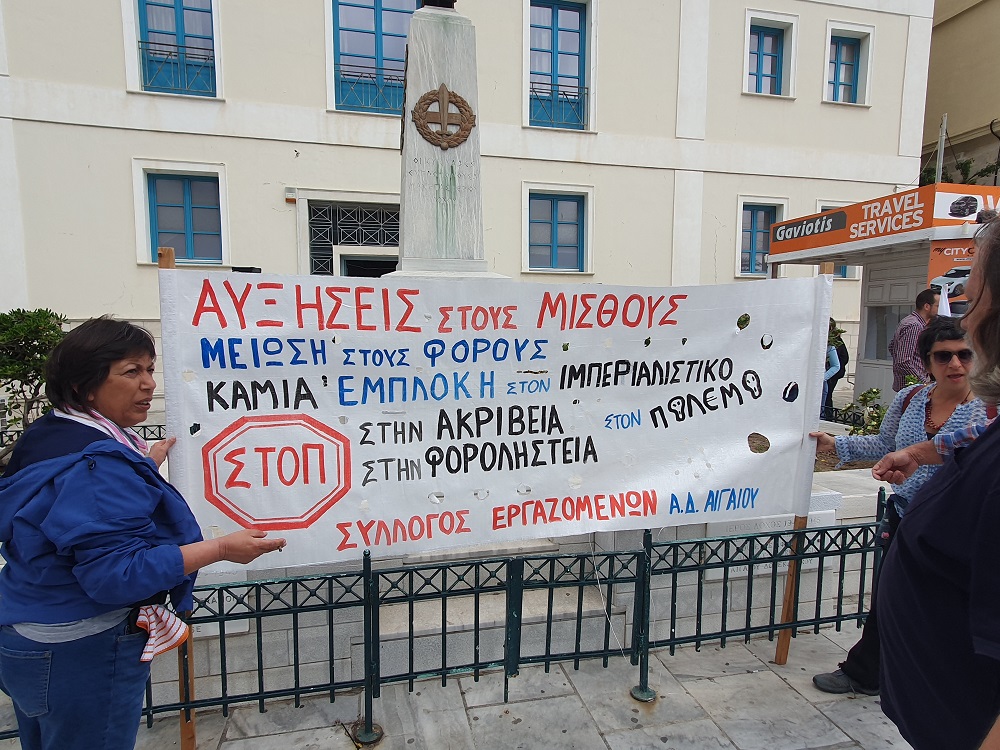 ΑΥΞΗΣΕΙΣ ΣΤΟΥΣ ΜΙΣΘΟΥΣ
ΜΕΙΩΣΗ ΣΤΟΥΣ ΦΟΡΟΥΣ
ΚΑΜΙΑ ΕΜΠΛΟΚΗ ΣΤΟΝ ΙΜΠΕΡΙΑΛΙΣΤΙΚΟ
ΣΤΟΝ ΠΟΛΕΜΟ
ΣΤΟΠ
ΣΤΗΝ ΑΚΡΙΒΕΙΑ
ΣΤΗΝ ΦΟΡΟΛΗΣΤΕΙΑ
ΣΥΛΛΟΓΟΣ ΕΡΓΑΖΟΜΕΝΩΝ Α.Δ. ΑΙΓΑΙΟΥ
Gaviotis
TRAVEL
SERVICES